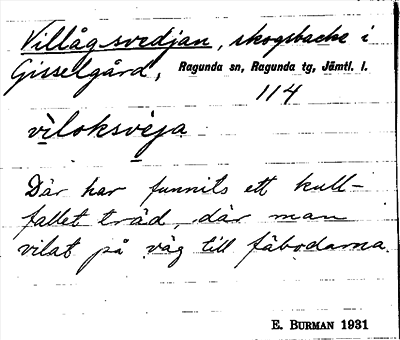 Villågsvedjan, skogsbacke i
Gisselgård, Ragunda sn, Ragunda tg, Jämtl. l.
114
vìloksvèja
Där har funnits ett kull-
fallet träd, där man
vilat på väg till fäbodarna.
E. BURMAN 1931